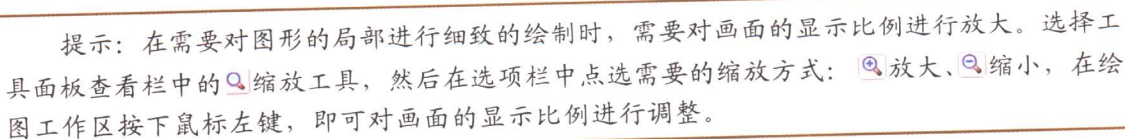 提示：在需要对图形的局部进行细致的绘制时，需要对画面的显示比例进行放大。选择工
具面板查看栏中的缩放工具，然后在选项栏中点选需要的缩放方式：放大、缩小，在绘
图工作区按下鼠标左键，即可对画面的显示比例进行调整。